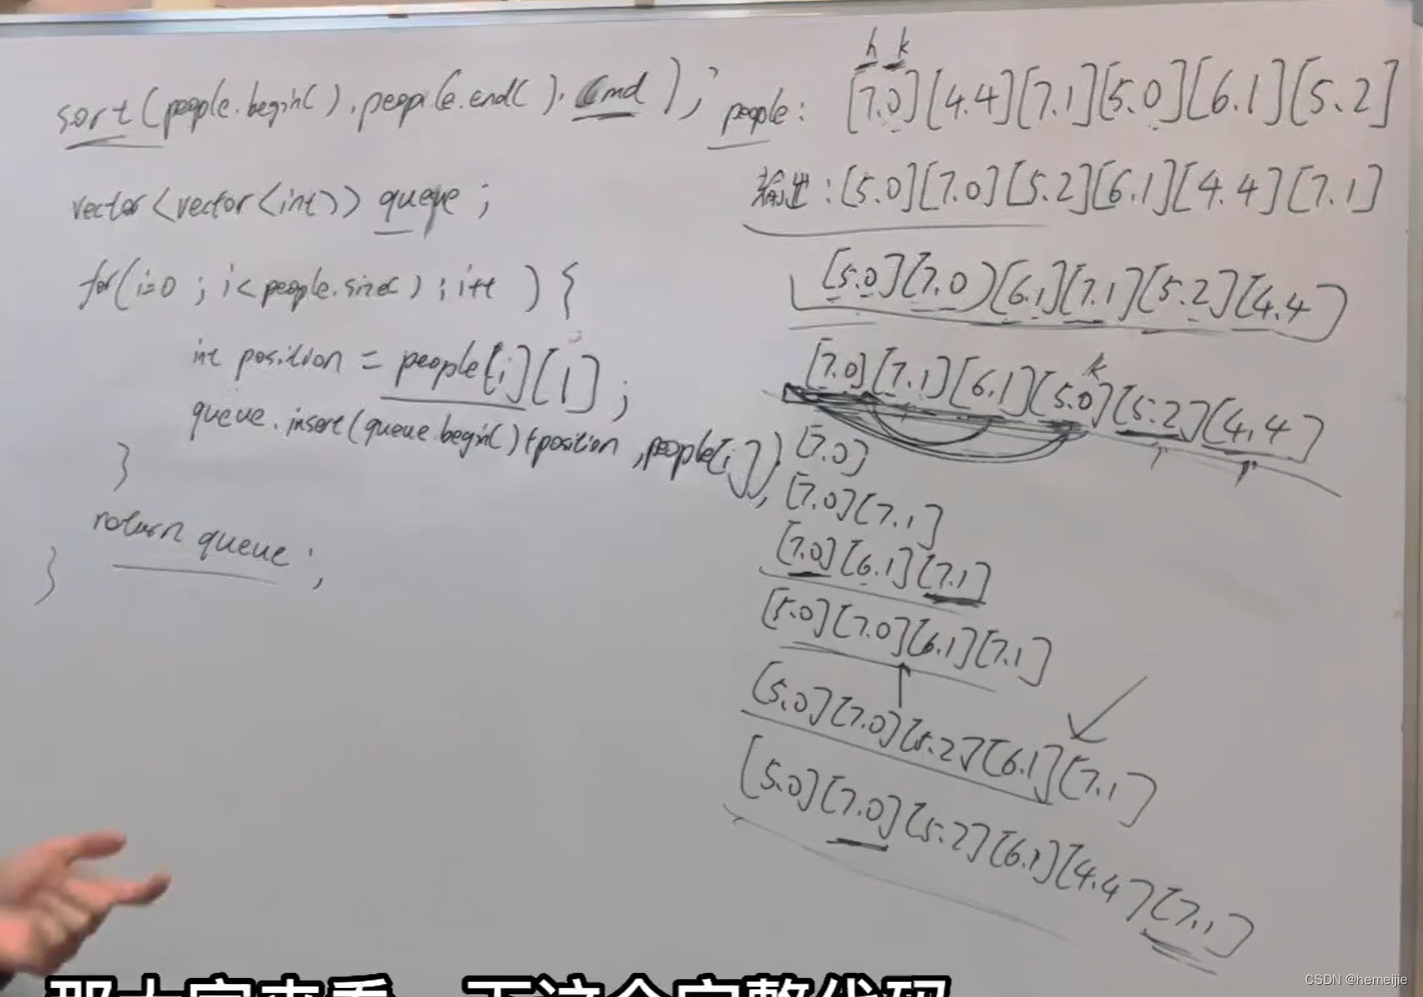 sort(people.begin(), people.end(), cmd);
vector<vector<int>> queue;
for(i=0 ; i<people.size() ; i++ ) {
int position = people[i][1];
queue.insert(queue.begin()+position ,people[i]);
}
return queue;
}
h k
people: [7.0][4.4][7.1][5.0][6.1][5.2]
输出:[5.0][7.0][5.2][6.1][4.4][7.1]
[5.0][7.0)[6.1][7.1][5.2][4.4]
k
[7.0][7.1][6.1][5.0][5.2][4.4]
[7.0]
[7.0][7.1]
[7.0][6.1][7.1]
[5.0][7.0][6.1][7.1]
[5.0][7.0][5.2][6.1][7.1]
[5.0][7.0][5.2][6.1][4.4][7.1]
那大家来看一下这个完整代码
CSDN @hemeijie